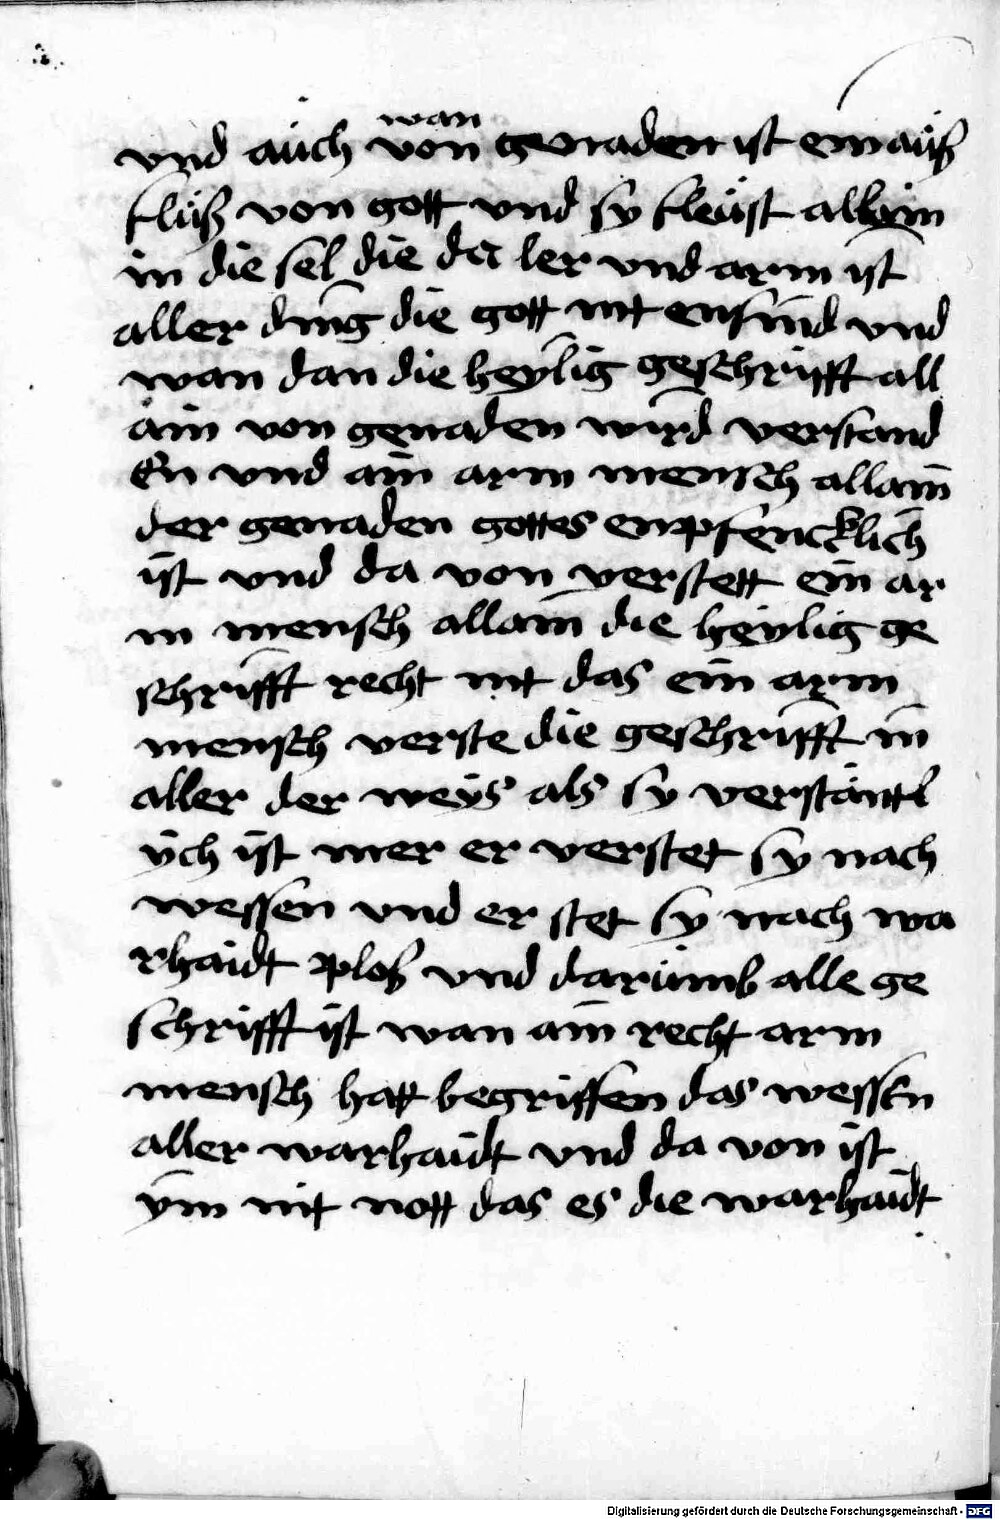 wan
vnd auch von genaden ist ein auß
fluß von gott vnd sy fleüst allain
in die sel die da ler vnd arm ist
aller ding die gott nit ensind vnd
wan dan die heylig geschrifft all
ain von genaden wird verstand
En vnd ain arm mensch allain
der genaden gottes enpfencklich
ist vnd da von verstett ein ar
m mensch allain die heylig ge
schrifft recht nit das ein arm
mensch verste die geschrifft in
aller der weÿs als sy verstäntl
ÿch ist mer er verstet sy nach
wessen vnd er stet sy nach wa
rhaidt plos vnd darumb alle ge
schrifft ist wan ain recht arm
mensch hatt begriffen das wessen
aller warhaidt vnd da von ist
ÿm nit nott das es die warhaidt
Digitalisierung gefördert durch die Deutsche Forschungsgemeinschaft - DFG